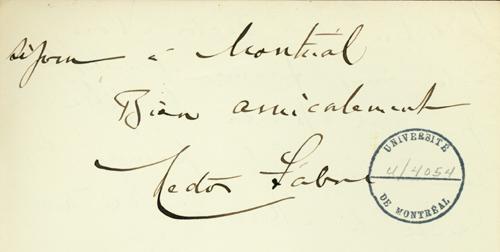 séjour à Montréal
Bien amicalement
Hector Fabre
UNIVERSITÉ
U/4054
DE MONTRÉAL